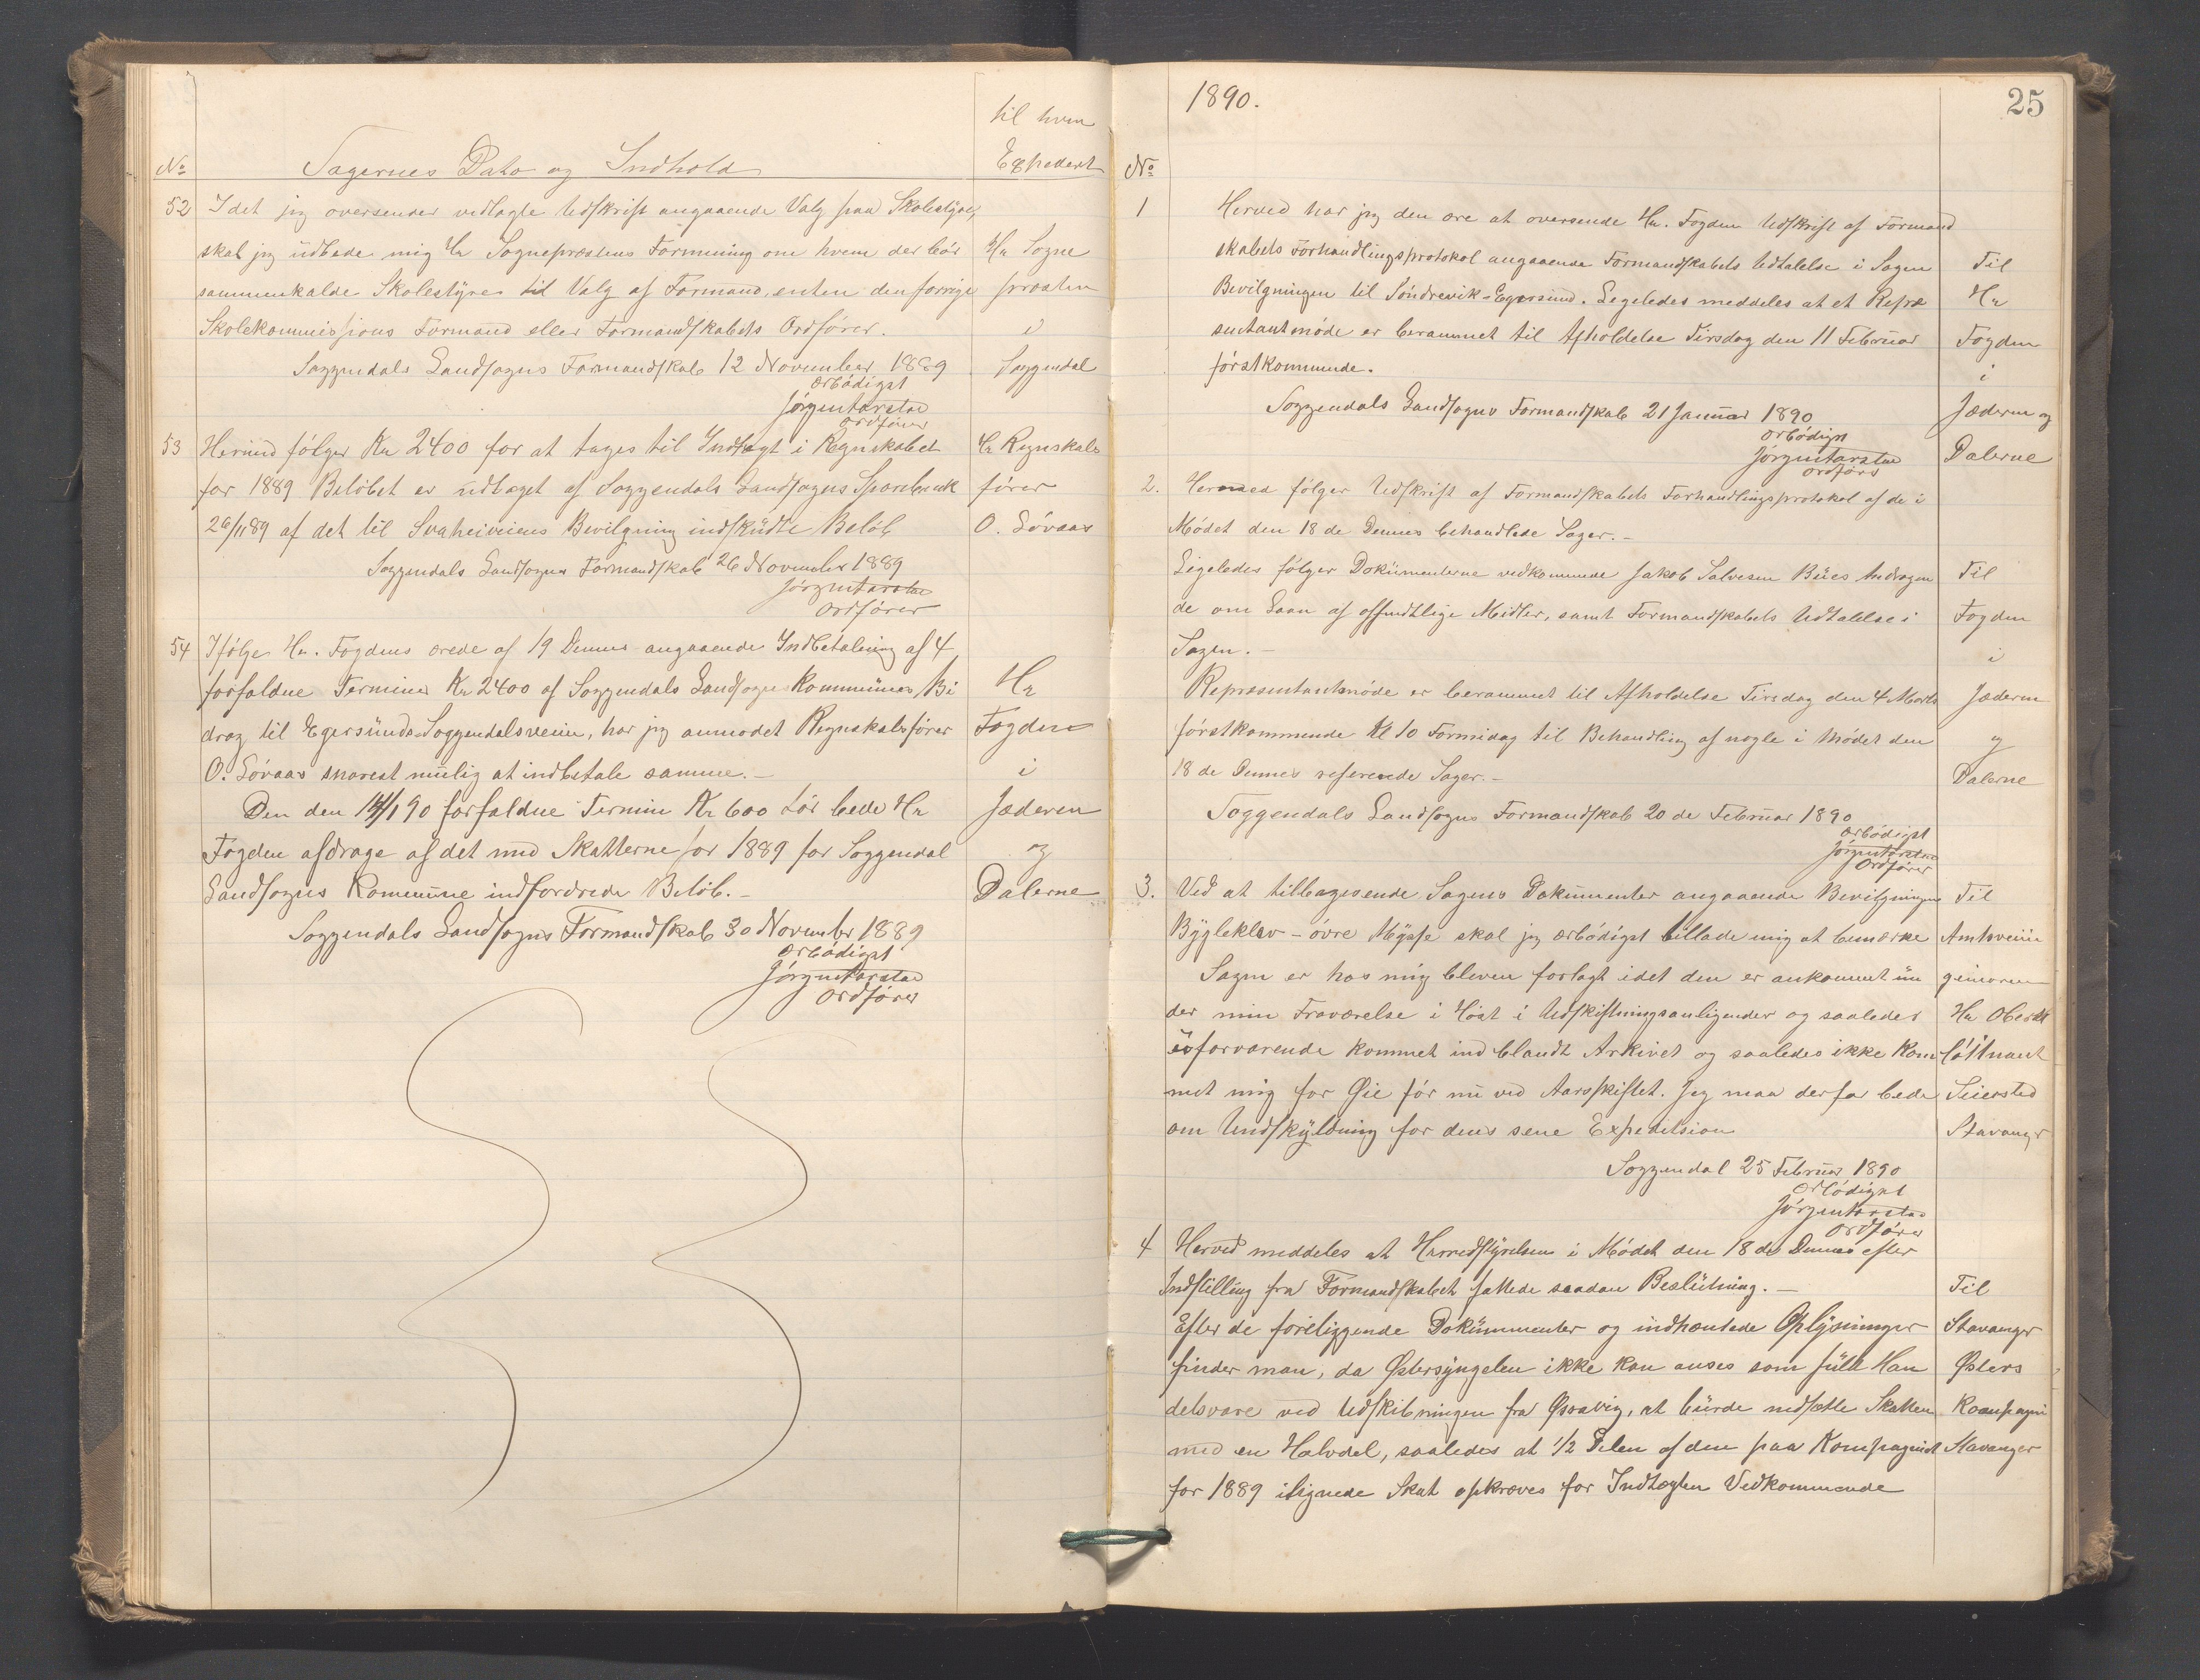 til hvem
No Sagernes Dato og Indhold Expedert
52 Idet jeg oversender vedlagte Udskrift angaaende Valg paa Skolestyre,
skal jeg udbede mig Hr Sognepræstens Formening om hvem der bör Hr Sogne
sammenkalde Skolestyret til Valg af Formand, enten den forrige præsten
Skolekommissions Formand eller Formandskabets Ordförer. i
Soggendals Landsogns Formandskab 12 November 1889 Soggendal
ærbödigst
Jörgen Aarstad
Ordförer
53 Hermed fölger Kr 2400 for at tages til Indtægt i Regnskabet Hr Regnskabs
for 1889 Belöbet er udtaget af Soggendals Landsogns Sparebank förer
26/11 89 af det til Svaheiveiens Bevilgning indskudte Belöb O. Lövaas
Soggendals Landsogns Formandskab 26 November 1889
Jörgen Aarstad
Ordförer
54 Ifölge Hr. Fogdens ærede af 19 Dennes angaaende Indbetaling af 4
forfaldne Terminer Kr 2400 af Soggendals Landsogns Kommunes Bi Hr
drag til Egersund-Soggendalsveien, har jeg anmodet Regnskabsförer Fogden
O. Lövaas snarest mulig at indbetale samme.- i
Den den 14/1 90 forfaldne Termin Kr 600 tör bede Hr Jæderen
Fogden afdrage af det med Skatterne for 1889 for Soggendal og
Landsogns Kommune indfordrede Belöb.- Dalerne
Soggendals Landsogns Formandskab 30 November 1889
ærbödigst
Jörgen Aarstad
Ordförer
1890. 25
No
1 Herved har jeg den ære at oversende Hr. Fogden Udskrift af Formand
skabets Forhandlingsprotokol angaaende Formandskabets Udtalelse i Sagen Til
Bevilgningen til Söndrevik-Egersund. Ligeledes meddeles at et Repræ Hr
sentantmöde er berammet til Afholdelse Tirsdag den 11 Februar Fogden
förstkommende. i
Soggendals Landsogns Formandskab 21 Januar 1890 Jæderen og
ærbödigst
Jörgen Aarstad Dalerne
Ordförer
2. Hermed fölger Udskrift af Formandskabets Forhandlingsprotokol af de i
Mödet den 18 de Dennes behandlede Sager.-
Ligeledes fölger Dokumenterne vedkommende Jakob Salvesen Bues Andragen Til
de om Laan af offentlige Midler, samt Formandskabets Udtalelse i Fogden
Sagen.- i
Repræsentantmöde er berammet til Afholdelse Tirsdag den 4 Marts Jæderen
förstkommende Kl 10 Formidag til Behandling af nogle i Mödet den og
18 de Dennes refererede Sager.- Dalerne
Soggendals Landsogns Formandskab 20 de Februar 1890
ærbödigst
Jörgen Aarstad
Ordförer
3. Ved at tilbagesende Sagens Dokumenter angaaende Bevilgningen Til
Bygleklev - övre Mysse skal jeg ærbödigst tillade mig at bemærke Amtsveiin
Sagen er hos mig bleven forlagt idet den er ankommet un geniøren
der min Fraværelse i Höst i Udskiftningsanligender og saaledes Hr Oberst
uforvarende kommet ind blandt Arkivet og saaledes ikke kom löitnant
met mig for Öie för nu ved Aarsskiftet. Jeg maa derfor bede Seiersted
om Undskyldning for dens sene Expedition Stavanger
Soggendal 25 Februar 1890
ærbödigst
Jörgen Aarstad
Ordförer
4 Herved meddeles at Herredstyrelsen i Mödet den 18 de Dennes efter
Indstilling fra Formandskabet fattede saadan Beslutning.- Til
Efter de foreliggende Dokummenter og indhentede Oplysninger Stavanger
finder man, da Östersyngelen ikke kan anses som fuld Han Østers
delsvare ved Udskibningen fra , at burde nedsætte Skatten Kompagni
med en Halvdel, saaledes at 1/2 Delen af den paa Kompagniet Stavanger
for 1889 ilignede Skat opkræves for Indtægten Vedkommende